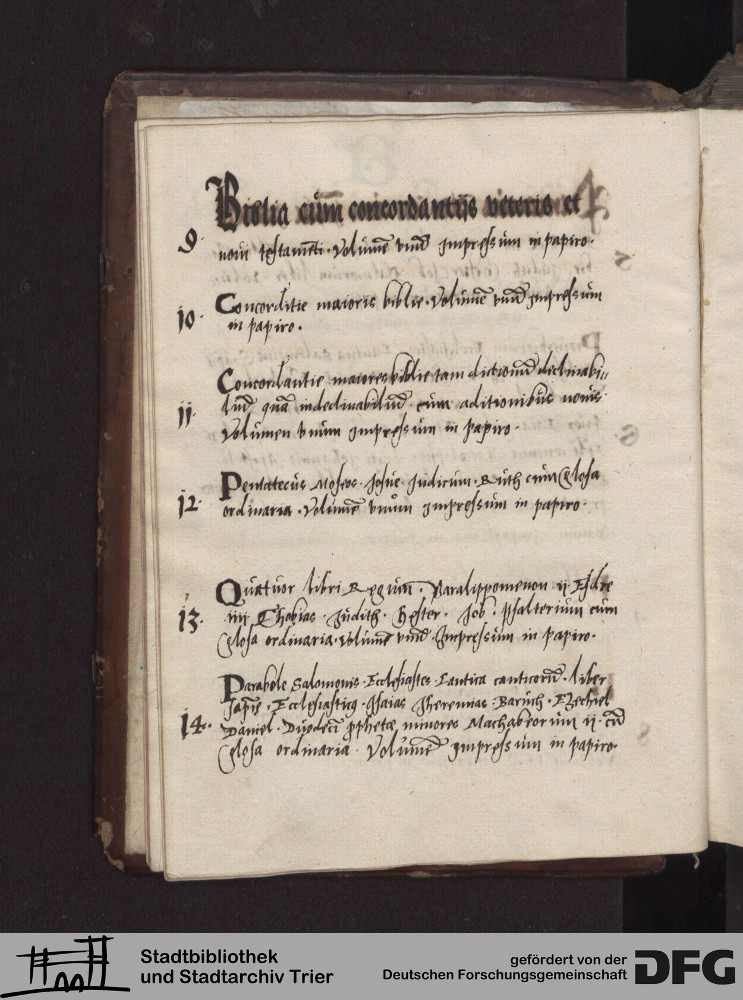 Biblia cum̄ concordantijs veteris et
9. noui testamēti. Volumē vnū Impressum in papiro.
10. Concorditie maioris biblie. Volumē vnū Impressum
in papiro.
Concordantie maiores biblie tam dictionū declinabi=
11. liū quā indeclinabiliū. cum aditionibus nouis.
Volumen vnum Impressum in papiro.
Pentatecus Moses. Josue. Judicum. Ruth cum Glosa
12. ordinaria. Volumē vnum Impressum in papiro.
Quatuor libri Regum. Paralippomenon ij. Esdre
13. iiij Thobias. Judith. Hester. Job. Psalterium cum
Glosa ordinaria. Volumē vnū Impressum in papiro.
Parabole Salomonis. Ecclesiastes. Cantica canticorū. liber
Sapiē. Ecclesiasticꝰ. Isaias Iheremias. Baruch. Ezechiel
14. Daniel. Duodecī pphetæ minores Machabeorum ij. cū
Glosa ordinaria. Volumē Impressum in papiro.
Stadtbibliothek
und Stadtarchiv Trier
gefördert von der
Deutschen Forschungsgemeinschaft
DFG